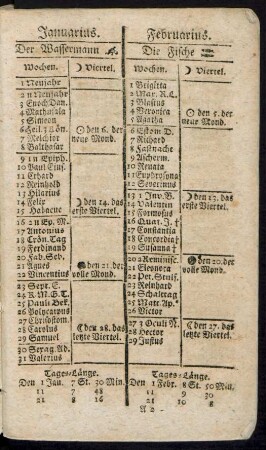 Januarius.
Der Wassermann
Wochen. Viertel.
1 Neujahr
2 n Neujahr
3 Enoch Dan.
4 Mathusala
5 Simeon
6 Heil. 3 Kön.
7 Melchior
8 Balthasar
den 6. der
neue Mond.
9 1 n Epiph.
10 Paul Einf.
11 Erhard
12 Reinhold
13 Hilarius
14 Felix
15 Habacuc
den 14. das
erste Viertel.
16 2 n Ep. M.
17 Antonius
18 Crön. Tag
19 Ferdinand
20 Fab. Seb.
21 Agnes
22 Vincentius
den 21. der
volle Mond.
23 Sept. E.
24
25 Pauli Bek.
26 Polycarpus
27 Chrysostom
28 Carolus
29 Samuel
den 28. das
letzte Viertel.
30 Sexag. Ad.
31 Valerius
Tages-Länge.
Den 1 Jan. 7 St. 30 Min.
11 7 48
21 8 16
Februarius.
Die Fische
Wochen. Viertel.
1 Brigitta
2 Mar. R.
3 Blasius
4 Veronica
5 Agatha
den 5. der
neue Mond.
6 Estom D.
7 Richard
8 Fastnacht
9 Ascherm.
10 Renata
11 Euphrosyna
12 Severinus
13 1 Inv. B.
14 Valentin
15 Formosus
16 Quat. J.
17 Constantia
18 Concordia
19 Susanna
den 13. das
erste Viertel.
20 2 Reminisc.
21 Eleonora
22 Pet. Stulf.
23 Reinhard
24 Schalttag
25 Mat. Ap.
26 Victor
den 20. der
volle Mond.
27 3 Oculi N.
28 Hector
29 Justus
den 27. das
letzte Viertel.
Tages-Länge.
Den 1 Febr. 8 St. 50 Min.
11 9 30
21 10 8
A 2